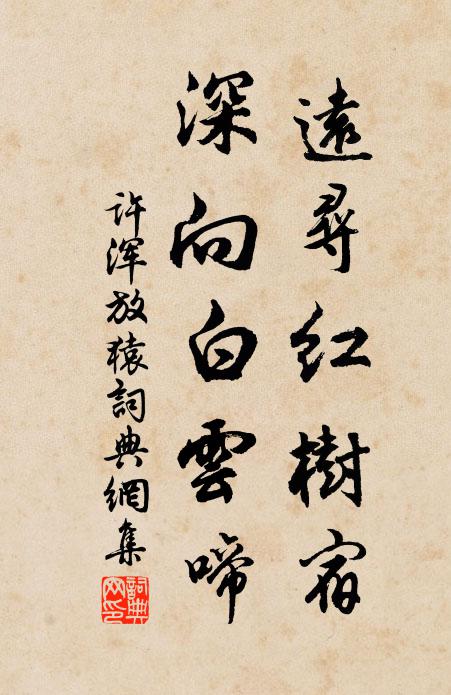 遠尋紅樹宿
深向白雲啼
许浑放猿詞典網集
詞典网印